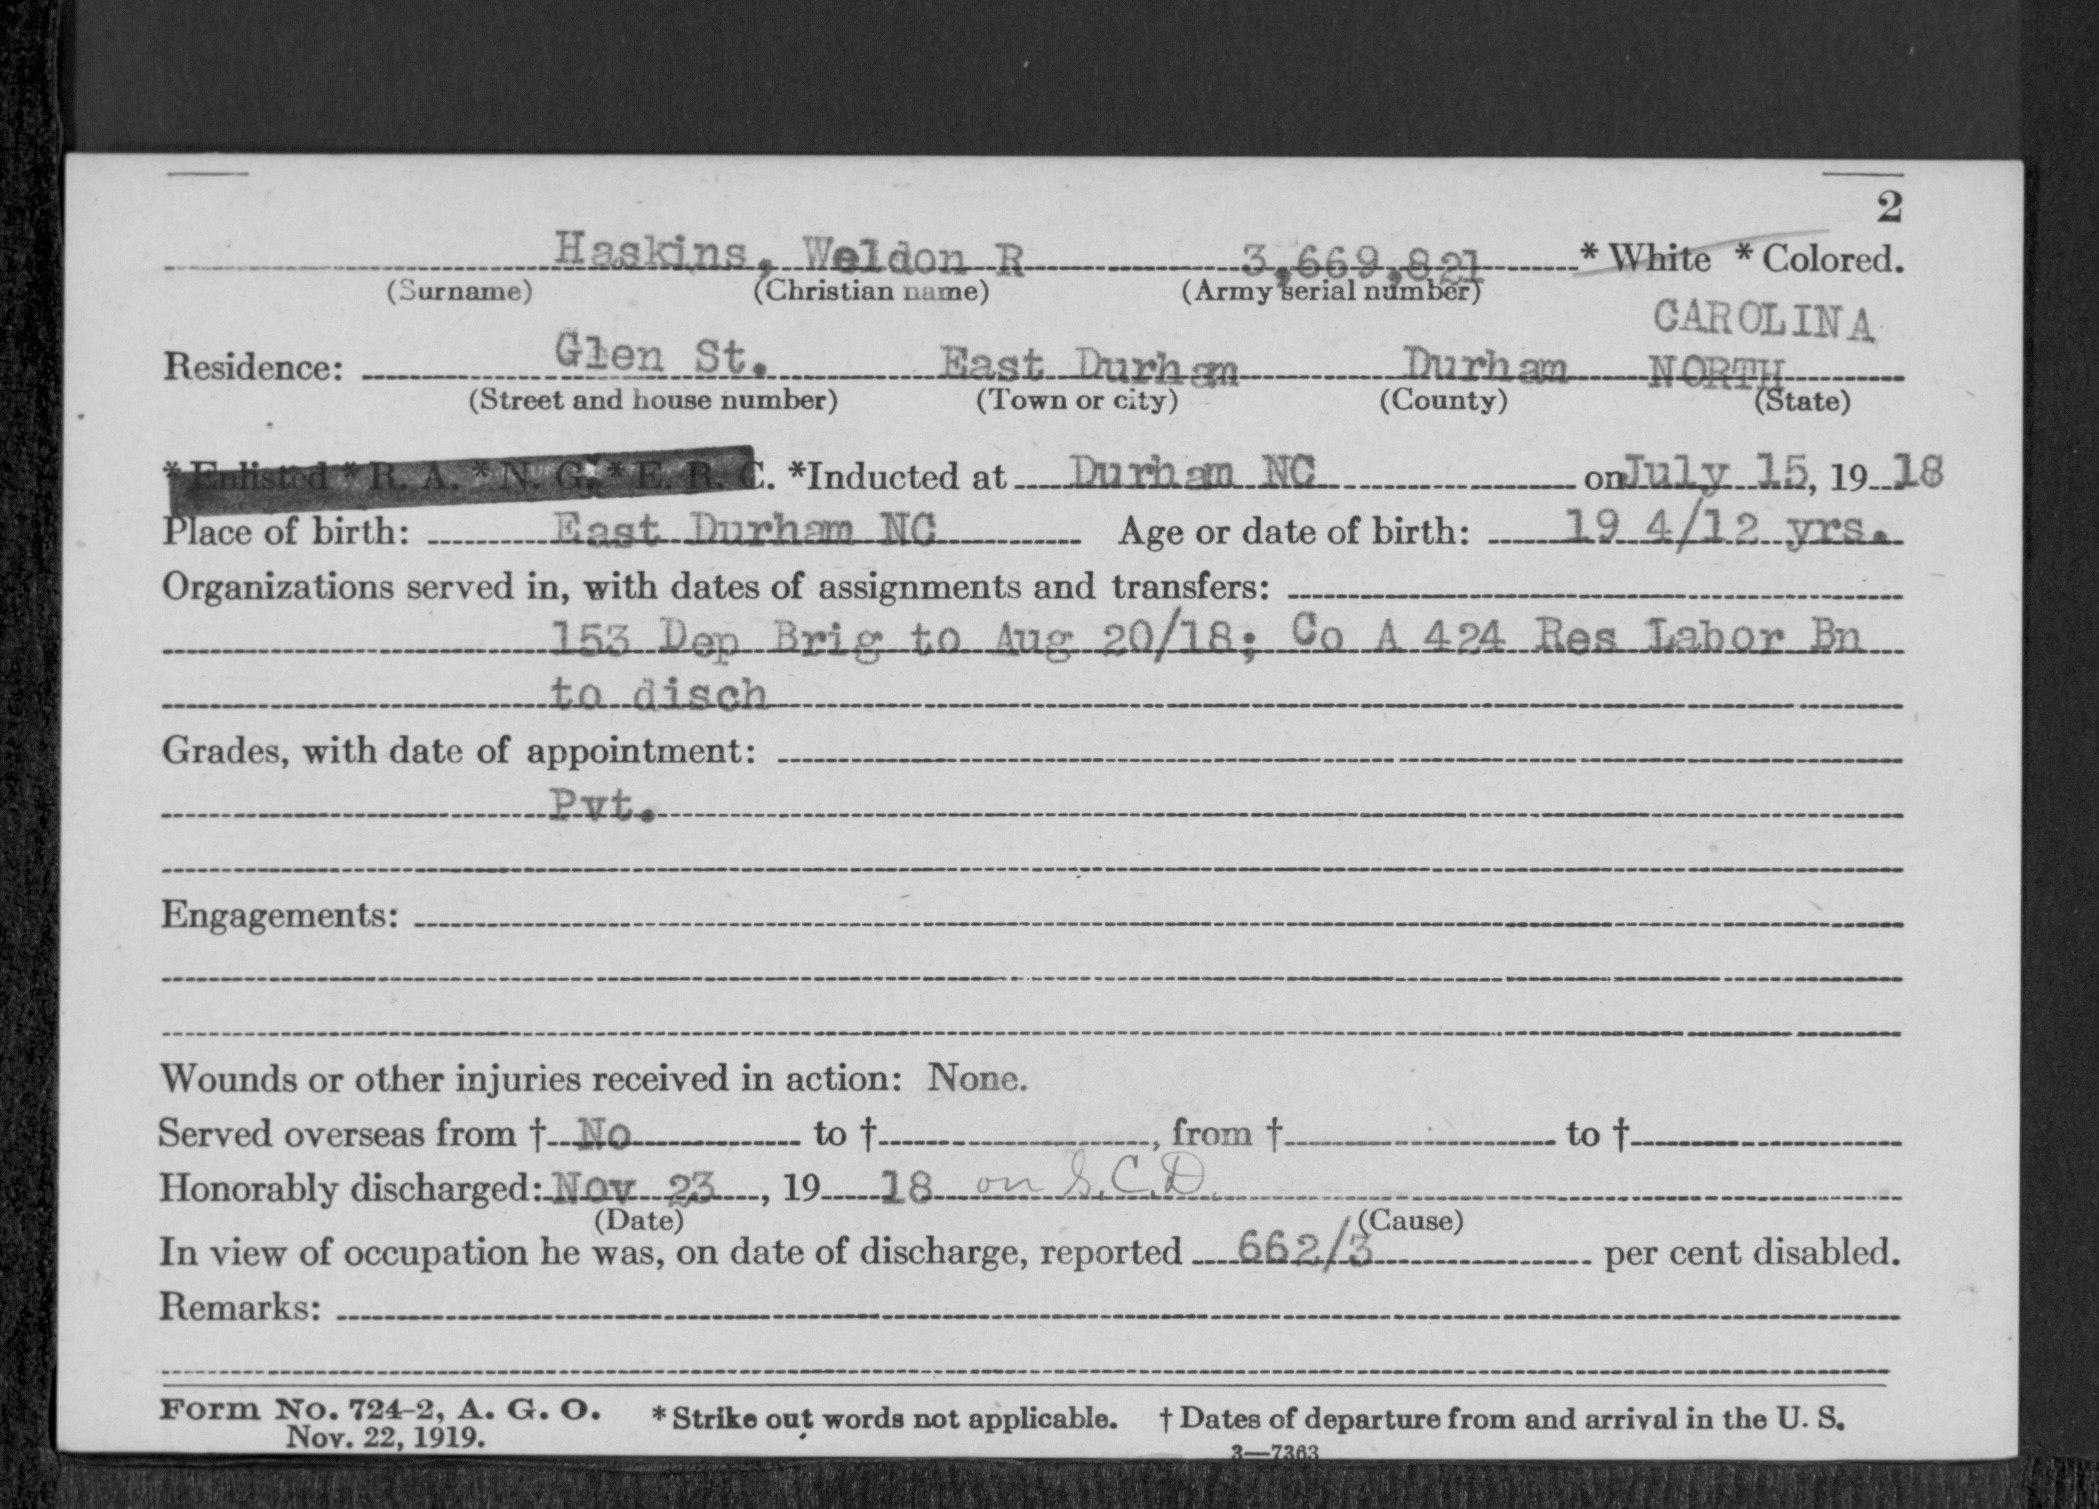 2
Haskins, Weldon R 3,669,821 * White * Colored.
(Surname) (Christian name) (Army serial number)
CAROLINA
Residence: Glen St. East Durham Durham NORTH
(Street and house number) (Town or city) (County) (State)
* Enlisted * R. A. * N. G. * E. R. C. *Inducted at Durham NC on July 15, 19 18
Place of birth: East Durham NC Age or date of birth: 19 4/12 yrs.
Organizations served in, with dates of assignments and transfers:
153 Dep Brig to Aug 20/18; Co A 424 Res Labor Bn
to disch
Grades, with date of appointment:
Pvt.
Engagements:
Wounds or other injuries received in action: None.
Served overseas from † No to †, from † to †
Honorably discharged: Nov 23, 19 18 on S.C.D.
(Date) (Cause)
In view of occupation he was, on date of discharge, reported 662/3 per cent disabled.
Remarks:
Form No. 724-2, A. G. O. * Strike out words not applicable. † Dates of departure from and arrival in the U. S.
Nov. 22, 1919.
3—7363